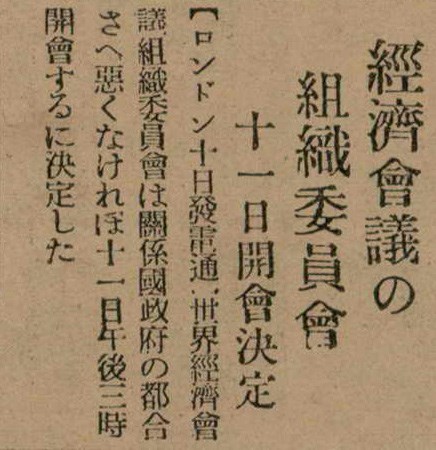 經濟會議の
組織委員會
十一日開會決定
【ロンドン十日發電通】世界經濟會
議組織委員會は關係國政府の都合
さへ惡くなければ十一日午後三時
開會するに決定した